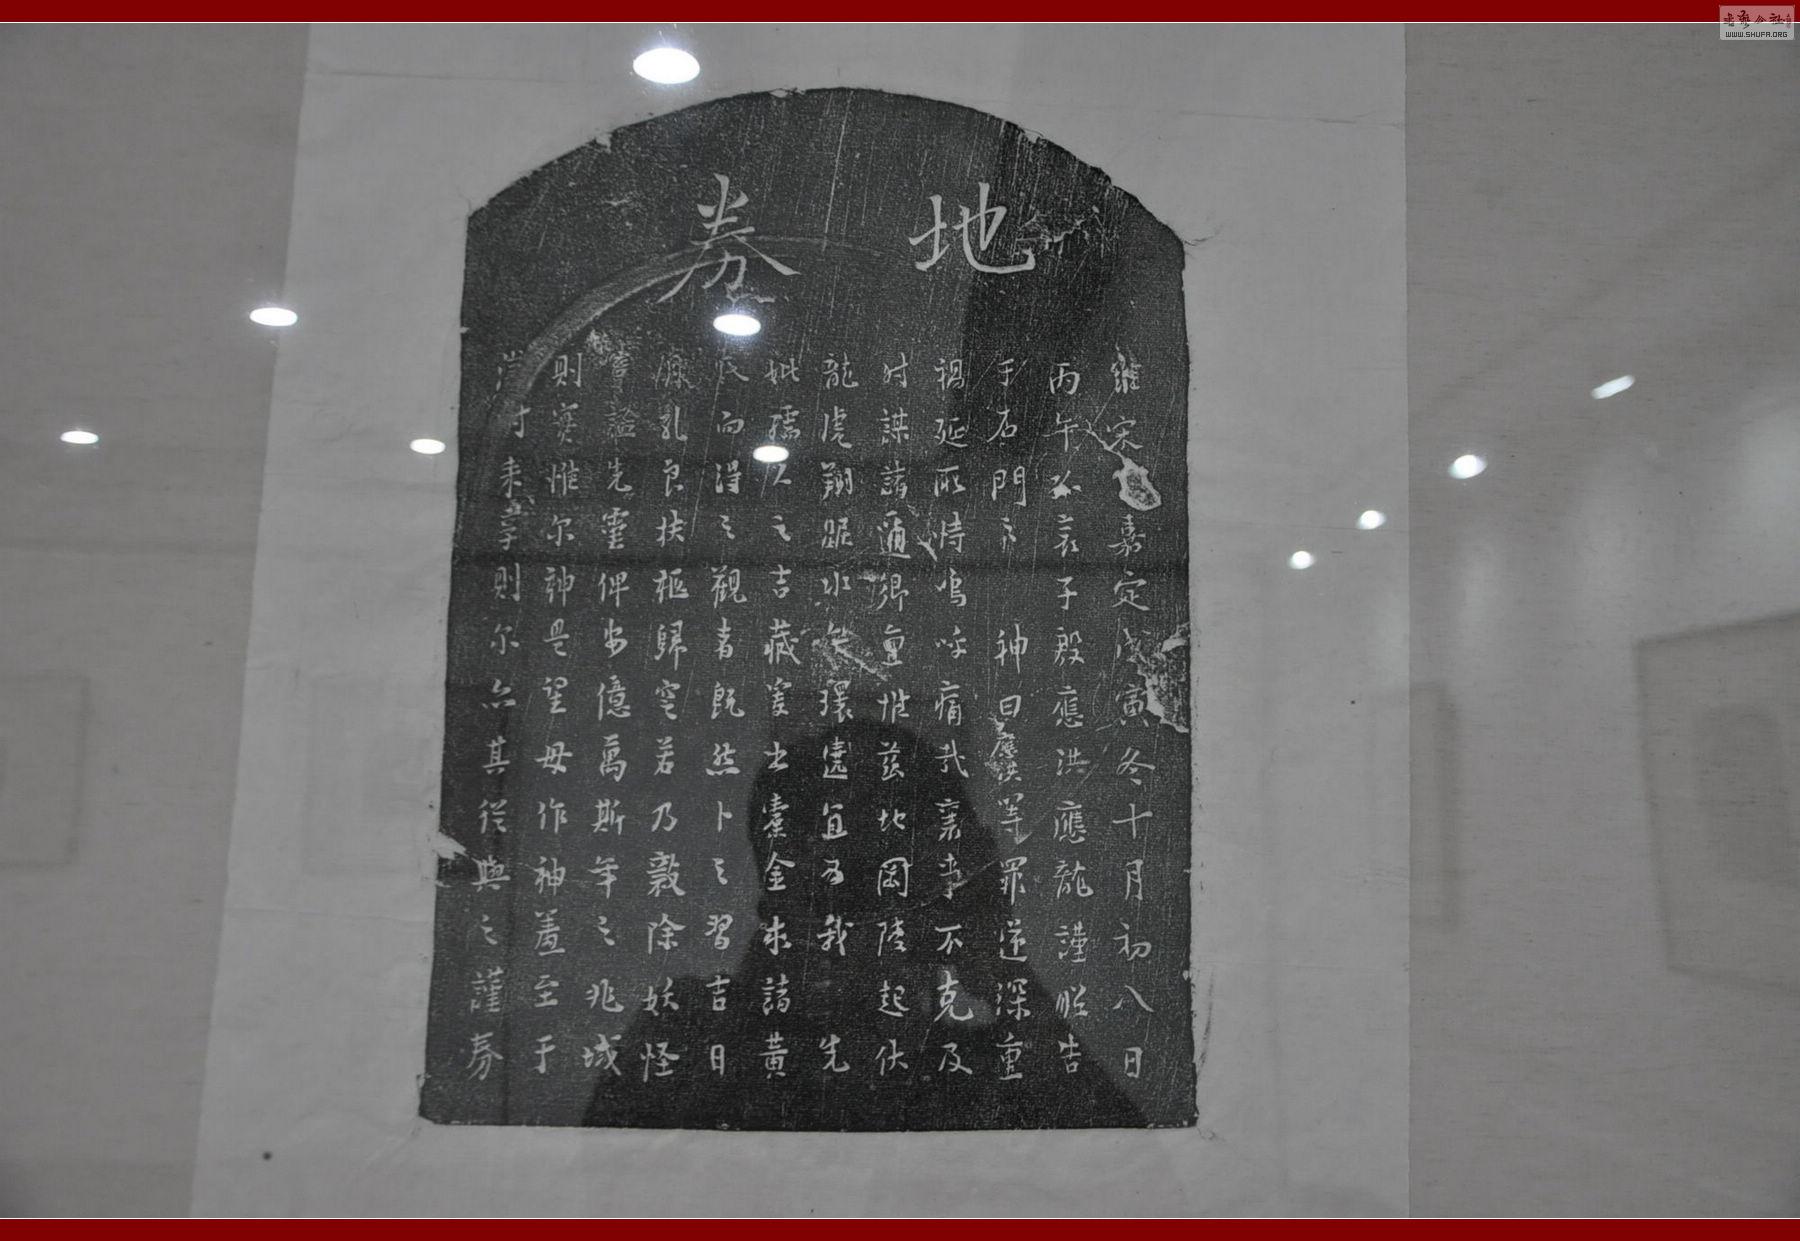 地券
維宋嘉定戊寅冬十月初八日
丙午孤哀子殷應洪應龍謹昭告
于石門之神曰應洪等罪逆深重
禍延所恃嗚呼痛哉襄事不克及
时謀諸邇卿重惟兹地岡陸起伏
龍虎翔踞水矢環遶宜為我先
妣孺人之吉藏爰出橐金求諸黄
氏向得之觀者既然卜之習吉日
乳良扶柩歸窆若乃敦除妖怪
謐先靈俾安億萬斯年之兆域
則寔惟尔神是望毋作神羞至于
時来享則尔亦其從與之謹券
書艺公社
WWW.SHUFA.ORG